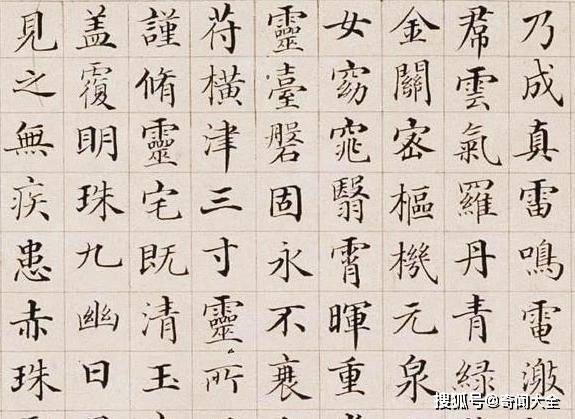 乃成真雷鳴電激
帬雲氣羅丹青綠
金關密樞機元泉
女窈窕翳霄暉重
靈臺磐固永不衰
苻橫津三寸靈所
謹脩靈宅既清玉
盖覆明珠九幽日
見之無疾患赤珠
搜狐号@奇闻大全